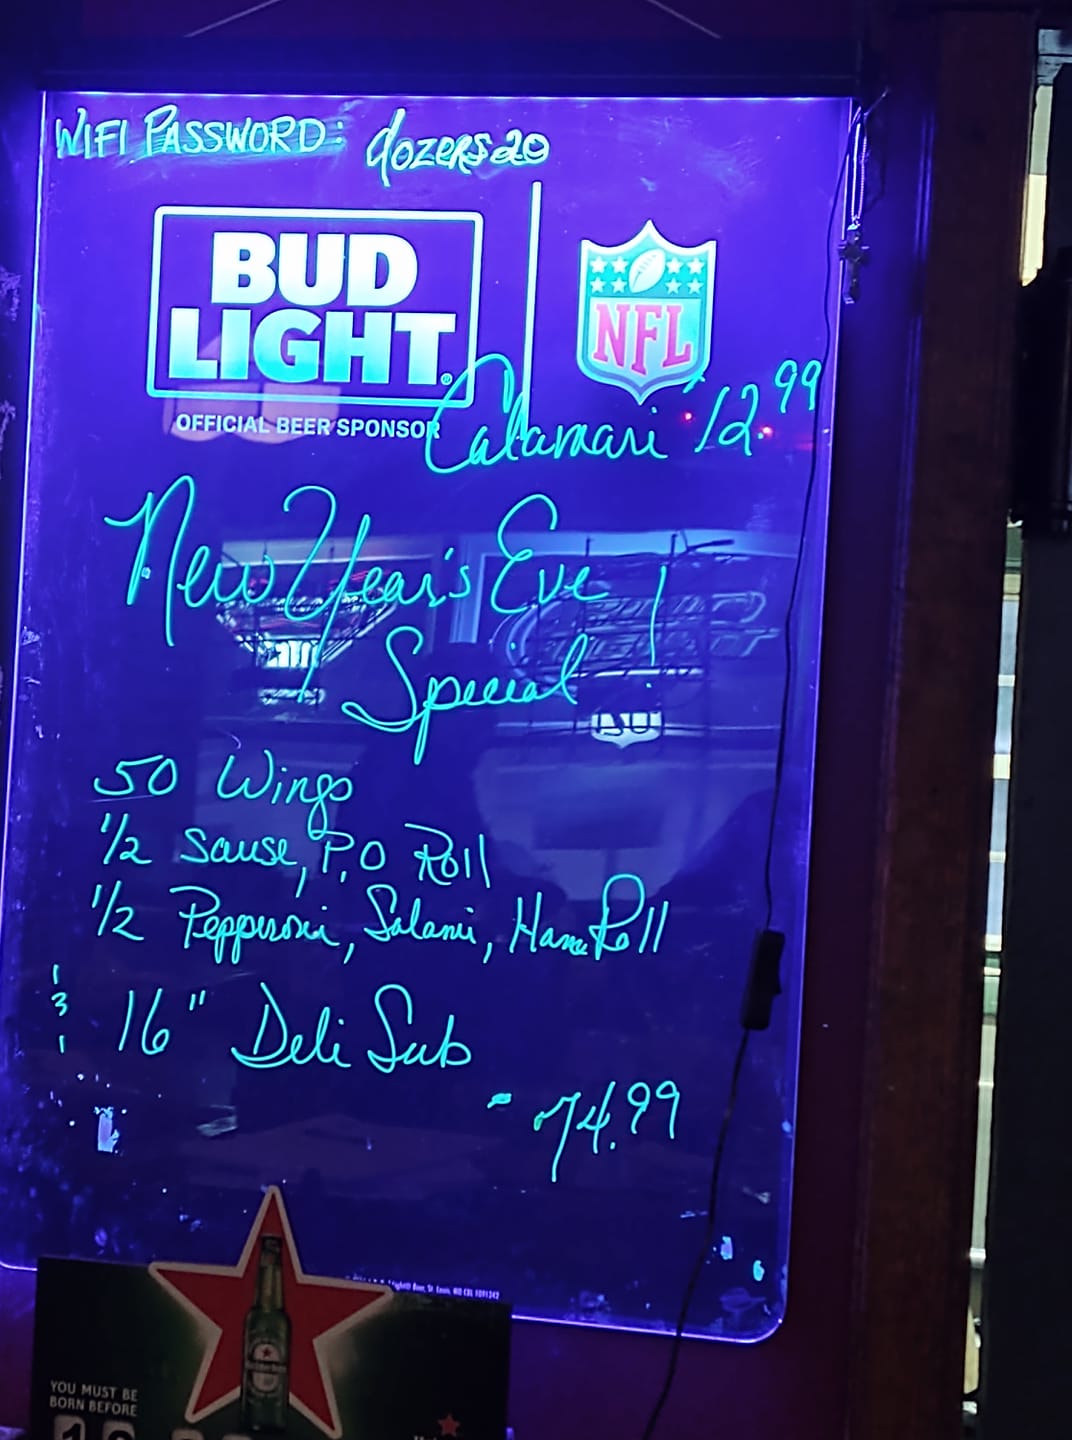 WIFI PASSWORD: dozers20
BUD
LIGHT
OFFICIAL BEER SPONSOR
NFL
Calamari 12.99
New Year's Eve !
Special
50 Wings
1/2 Sause, P.O Roll
1/2 Pepperoni, Salami, Ham Roll
1
3
1
16" Deli Sub
- 74.99
YOU MUST BE
BORN BEFORE